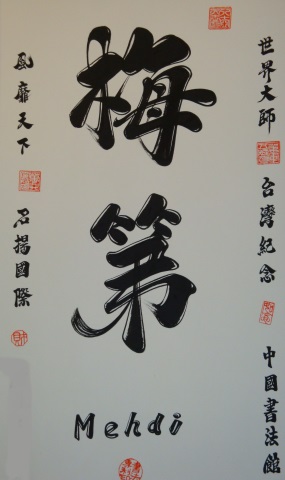 世界大師 台灣紀念 中國書法館
梅第
Mehdi
風靡天下 名揚國際